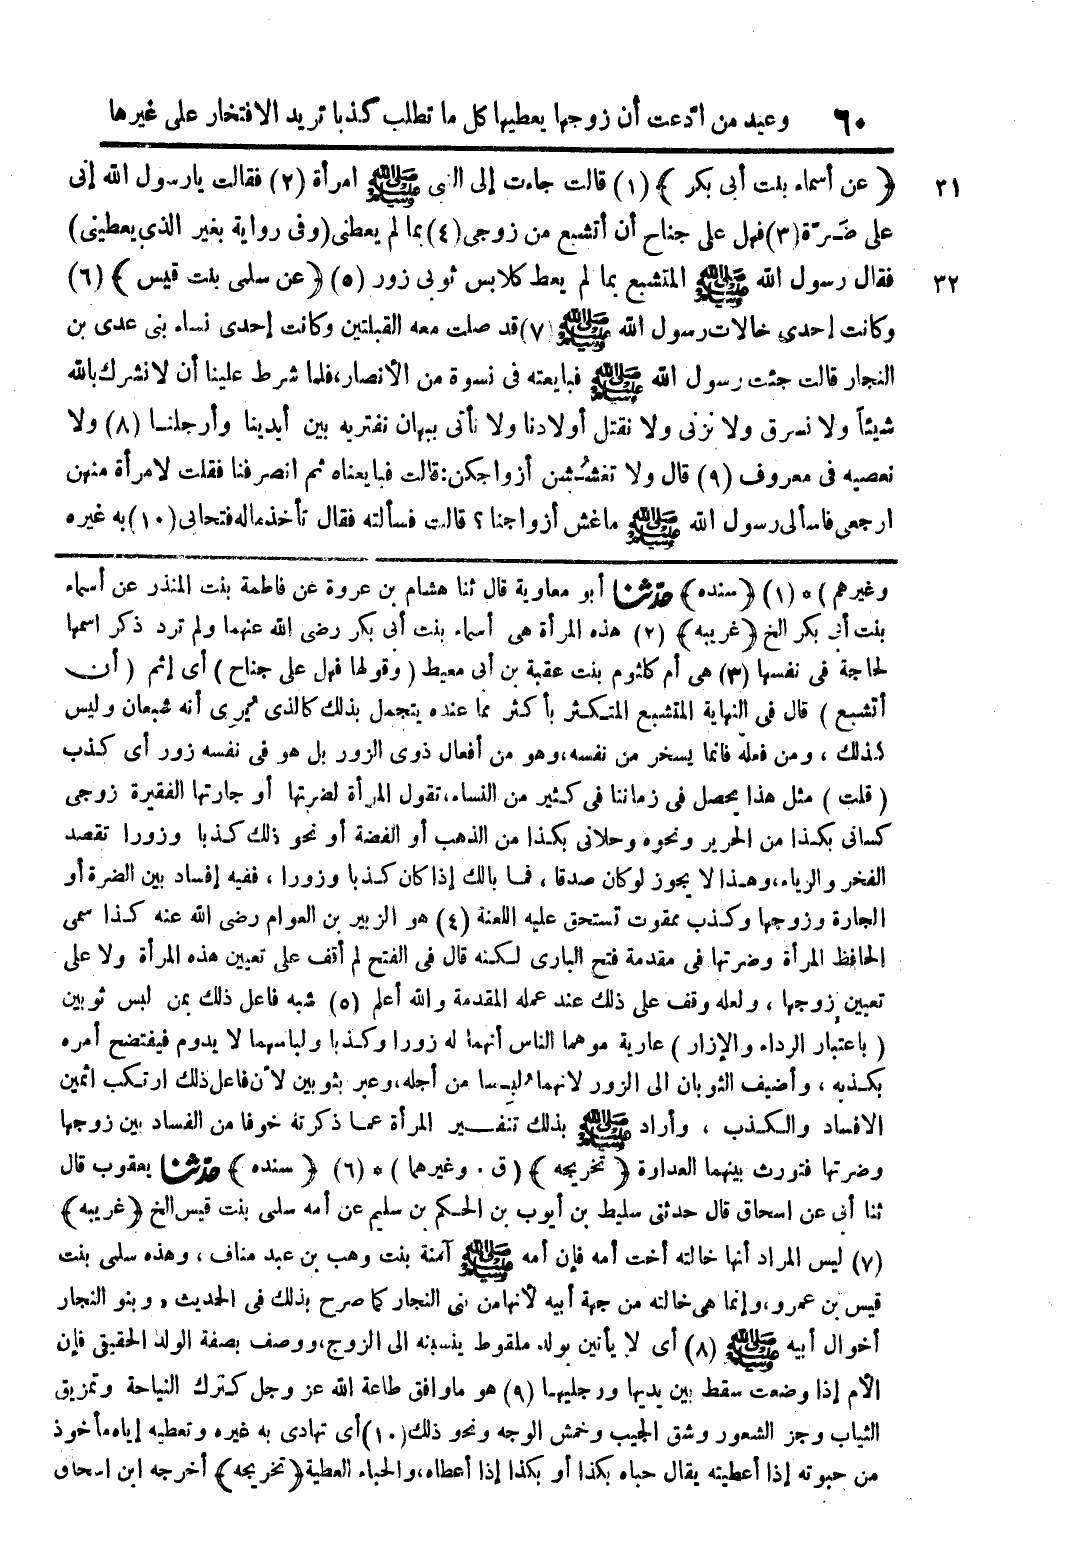 ٦٠ وعيد من ادّعت أن زوجها يعطيها كل ما تطلب كذبا تريد الافتخار على غيرها
٣١ ﴿ عن أسماء بنت أبى بكر ﴾ (١) قالت جاءت إلى النبى ﷺ امرأة (٢) فقالت يارسول الله إنى
على ضَرَّة (٣) فهل على جناح أن أتشبع من زوجى (٤) بما لم يعطنى (وفى رواية بغير الذى يعطينى)
٣٢ فقال رسول الله ﷺ المتشبع بما لم يعط كلابس ثوبى زور (٥) ﴿ عن سلمى بنت قيس ﴾ (٦)
وكانت إحدى خالات رسول الله ﷺ (٧) قد صلت معه القبلتين وكانت إحدى نساء بنى عدى بن
النجار قالت جئت رسول الله ﷺ فبايعته فى نسوة من الأنصار، فلما شرط علينا أن لا نشرك بالله
شيئاً ولا نسرق ولا نزنى ولا نقتل أولادنا ولا نأتى ببهتان نفتريه بين أيدينا وأرجلنا (٨) ولا
نعصيه فى معروف (٩) قال ولا تغششن أزواجكن: قالت فبايعناه ثم انصرفنا فقلت لامرأة منهن
ارجعى فاسألى رسول الله ﷺ ماغش أزواجنا؟ قالت فسألته فقال تأخذ ماله فتحابى (١٠) به غيره
وغيرهم ) * (١) ﴿ سنده ﴾ حدّثنا أبو معاوية قال ثنا هشام بن عروة عن فاطمة بنت المنذر عن أسماء
بنت أبى بكر الخ ﴿ غريبه ﴾ (٢) هذه المرأة هى أسماء بنت أبى بكر رضى الله عنهما ولم ترد ذكر اسمها
لحاجة فى نفسها (٣) هى أم كلثوم بنت عقبة بن أبى معيط ( وقولها فهل على جناح ) أى إثم ( أن
أتشبع ) قال فى النهاية المتشبع المتكثر بأكثر مما عنده يتجمل بذلك كالذى يُرِى أنه شبعان وليس
كذلك ، ومن فعله فانما يسخر من نفسه، وهو من أفعال ذوى الزور بل هو فى نفسه زور أى كذب
( قلت ) مثل هذا يحصل فى زماننا فى كثير من النساء، تقول المرأة لضرتها أو جارتها الفقيرة زوجى
كسانى بكذا من الحرير ونحوه وحلانى بكذا من الذهب أو الفضة أو نحو ذلك كذبا وزورا تقصد
الفخر والرياء، وهذا لا يجوز لو كان صدقا ، فما بالك إذا كان كذبا وزورا ، ففيه إفساد بين الضرة أو
الجارة وزوجها وكذب ممقوت تستحق عليه اللعنة (٤) هو الزبير بن العوام رضى الله عنه كذا سمى
الحافظ المرأة وضرتها فى مقدمة فتح البارى لكنه قال فى الفتح لم أقف على تعيين هذه المرأة ولا على
تعيين زوجها ، ولعله وقف على ذلك عند عمله المقدمة والله أعلم (٥) شبه فاعل ذلك بمن لبس ثوبين
( باعتبار الرداء والإزار ) عارية موهما الناس أنهما له زورا وكذبا ولباسهما لا يدوم فيفتضح أمره
بكذبه ، وأضيف الثوبان الى الزور لانهما لُبِسا من أجله، وعبر بثوبين لأن فاعل ذلك ارتكب اثمين
الافساد والكذب ، وأراد ﷺ بذلك تنفير المرأة عما ذكرته خوفا من الفساد بين زوجها
وضرتها فتورث بينهما العداوة ﴿ تخريجه ﴾ ( ق . وغيرهما ) * (٦) ﴿ سنده ﴾ حدّثنا يعقوب قال
ثنا أبى عن اسحاق قال حدثنى سليط بن أيوب بن الحكم بن سليم عن أمه سلمى بنت قيس الخ ﴿ غريبه ﴾
(٧) ليس المراد أنها خالته أخت أمه فإن أمه ﷺ آمنة بنت وهب بن عبد مناف ، وهذه سلمى بنت
قيس بن عمرو، وإنما هى خالته من جهة أبيه لأنها من بنى النجار كما صرح بذلك فى الحديث ، وبنو النجار
أخوال أبيه ﷺ (٨) أى لا يأتين بولد ملقوط ينسبنه الى الزوج، ووصف بصفة الولد الحقيقى فإن
الأم إذا وضعت سقط بين يديها ورجليها (٩) هو ماوافق طاعة الله عز وجل كترك النياحة وتمزيق
الثياب وجز الشعور وشق الجيب وخمش الوجه ونحو ذلك (١٠) أى تهادى به غيره وتعطيه إياه مأخوذ
من حبوته إذا أعطيته يقال حباه بكذا أو بكذا إذا أعطاه، والحباء العطية ﴿ تخريجه ﴾ أخرجه ابن اسحاق